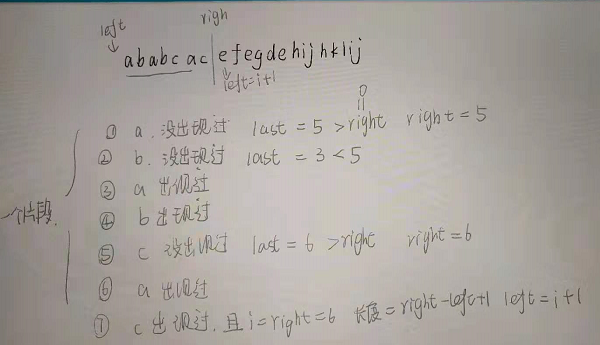 left
righ
ababcac|efegdehijhklij
left=i+1
0
||
① a. 没出现过 last = 5 > right right = 5
② b. 没出现过 last = 3 < 5
③ a 出现过
④ b 出现过
一个片段.
⑤ c 没出现过 last = 6 > right right = 6
⑥ a 出现过
⑦ c 出现过, 且 i = right = 6 长度 = right-left+1 left = i+1